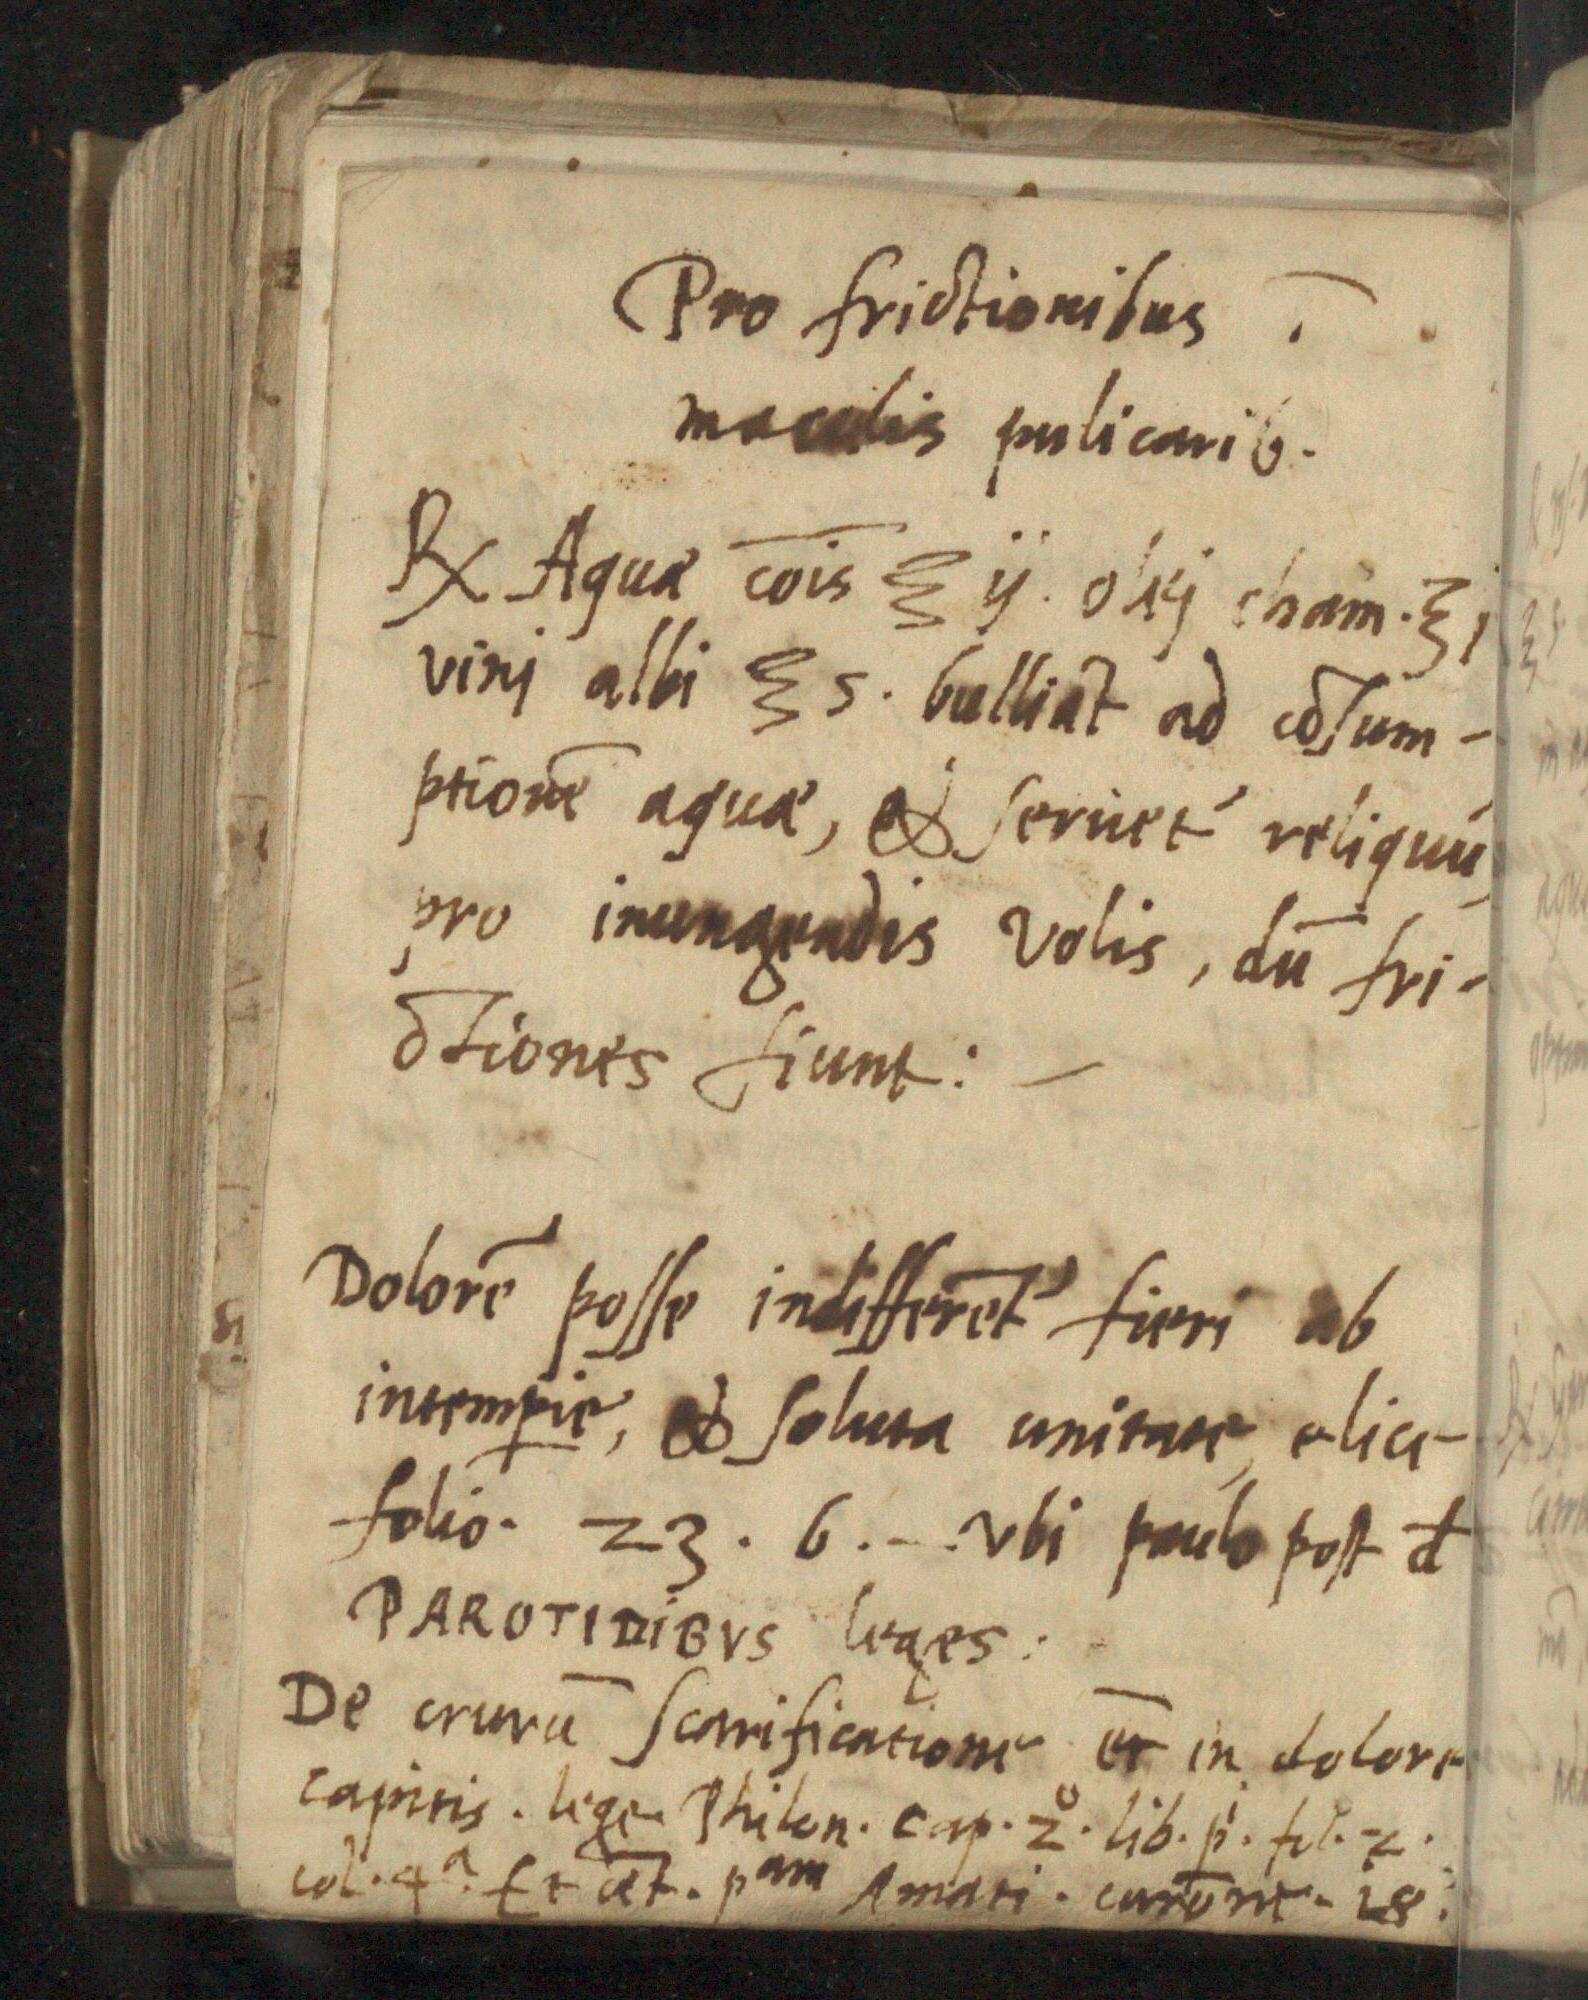 Pro frictionibus ī
maculis pulicarib.
℞ Aquæ cōis ℥ ij. olej cham. ℥ j
vinj albi ℥ s. bulliāt ad cōsum-
ptionē aquæ, & seruet' reliquū
pro inungendis volis, dū fri-
ctiones fiunt: —
Dolorē posse indifferēt' fieri ab
intemꝑie, & soluta unitate, elice
folio. 23. 6. -. vbi paulo post đ
PAROTIDIBVS leges:
De crurū scarificatione et̄ in dolore
capitis. lege Philon. cap. 2°. lib. p'. fol. 2.
col. 4ª. Et cēt. pam Amati. curōne. 28: